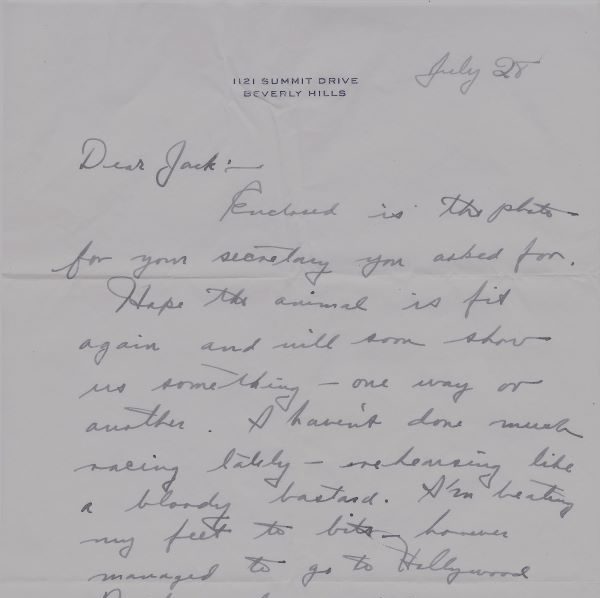 1121 SUMMIT DRIVE
BEVERLY HILLS
July 28
Dear Jack:—
Enclosed is the photo
for your secretary you asked for.
Hope the animal is fit
again and will soon show
us something – one way or
another. I haven't done much
racing lately – rehearsing like
a bloody bastard. I'm beating
my feet to bits – however
managed to go to Hollywood